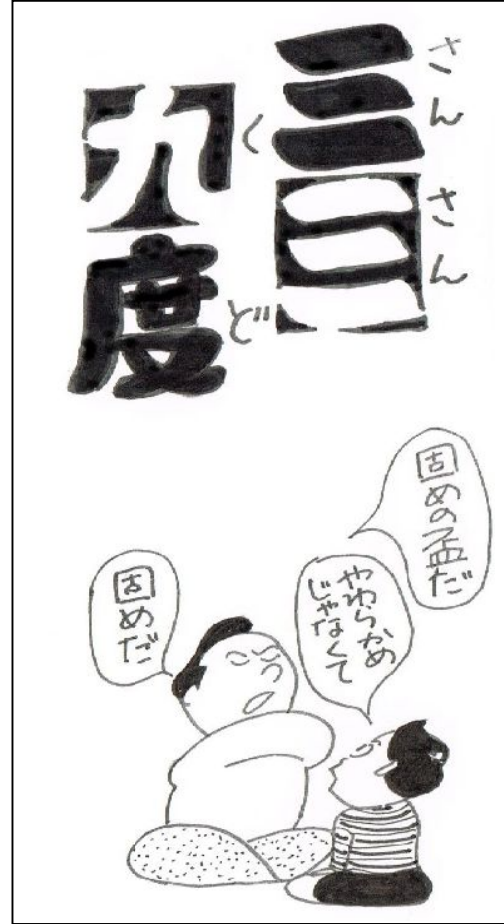 三三
さんさん
九度
くど
固めの盃だ
やわらかめ
じゃなくて
固めだ